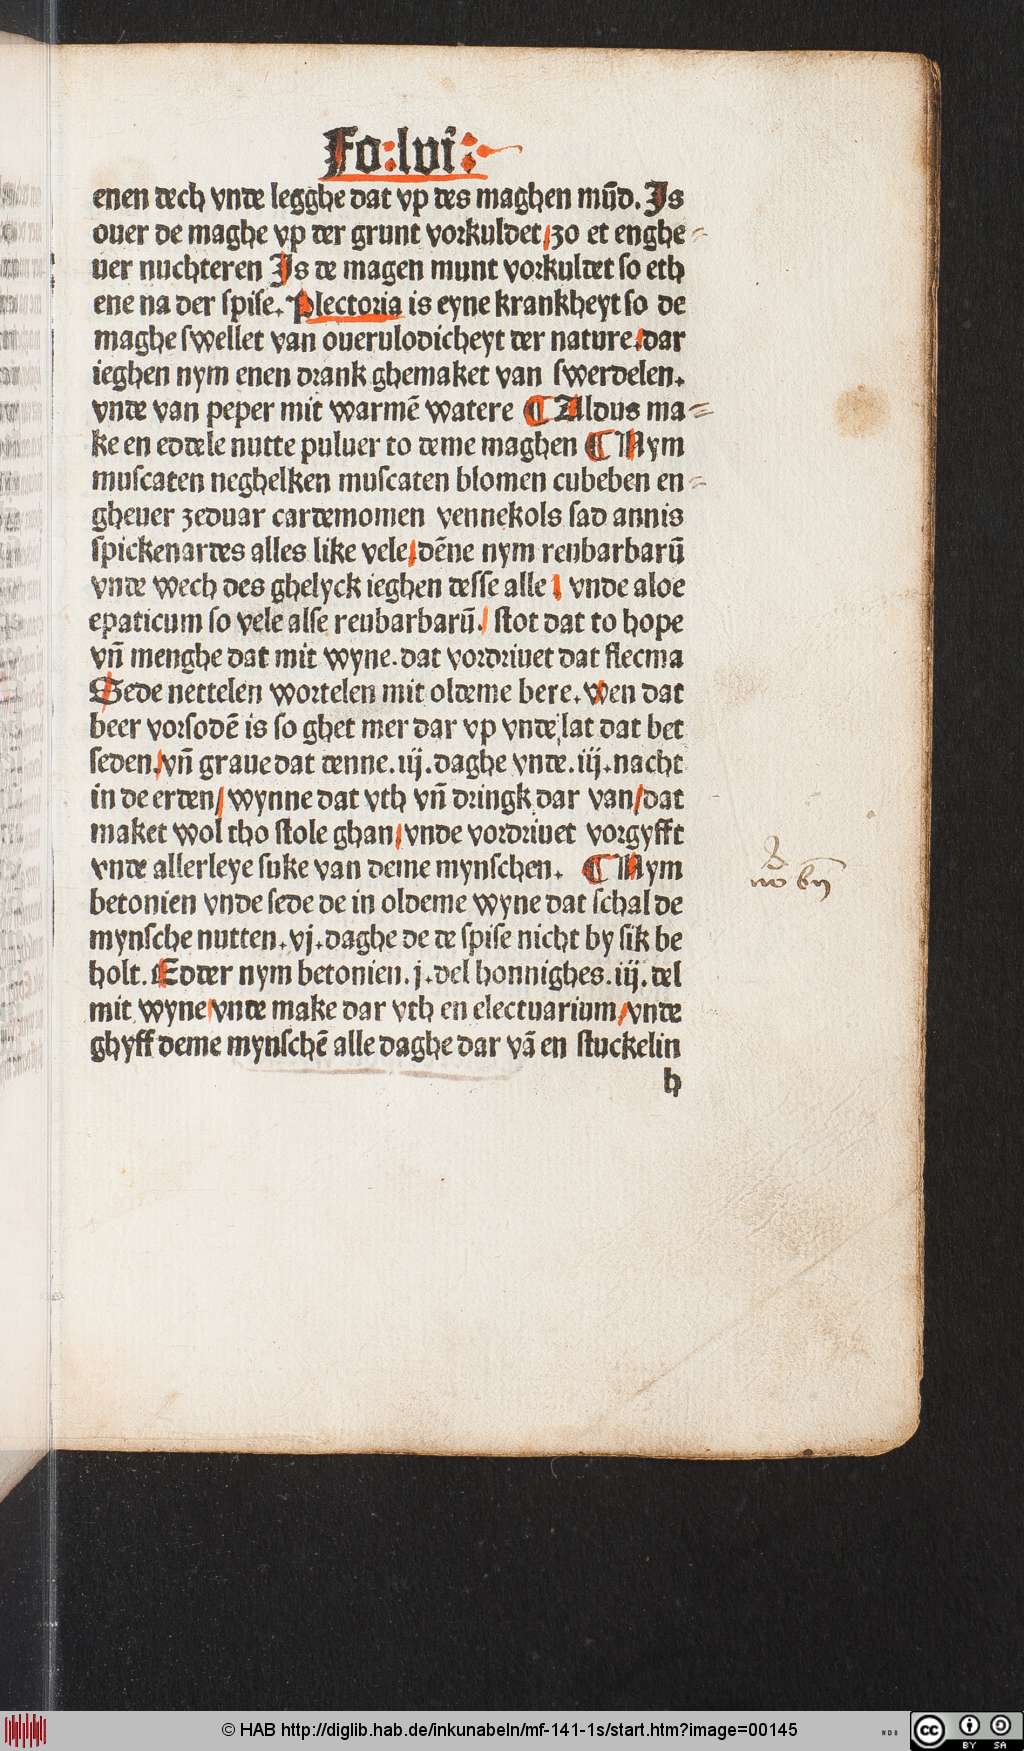 Fo: lvi:
enen dech vnde legghe dat vp des maghen mūd. Js
ouer de maghe vp der grunt vorkuldet/ zo et enghe⸗
uer nuchteren Js de magen munt vorkuldet so eth
ene na der spise. Plectoria is eyne krankheyt so de
maghe swellet van ouerulodicheyt der nature/ dar
ieghen nym enen drank ghemaket van swerdelen.
vnde van peper mit warmē watere ¶ Aldus ma⸗
ke en eddele nutte puluer to deme maghen ¶ Nym
muscaten neghelken muscaten blomen cubeben en⸗
gheuer zeduar cardemomen vennekols sad annis
spickenardes alles like vele/ dēne nym reubarbarū
vnde wech des ghelyck ieghen desse alle / vnde aloe
epaticum so vele alse reubarbarū./ stot dat to hope
vn̄ menghe dat mit wyne. dat vordriuet dat flecma
Sede nettelen wortelen mit oldeme bere. wen dat
beer vorsodē is so ghet mer dar vp vnde lat dat bet
seden./ vn̄ graue dat denne. iij. daghe vnde. iij. nacht
in de erden/ wynne dat vth vn̄ dringk dar van/ dat
maket wol tho stole ghan/ vnde vordriuet vorgyfft
vnde allerleye suke van deme mynschen. ¶ Nym
betonien vnde sede de in oldeme wyne dat schal de
mynsche nutten. vj. daghe de de spise nicht by sik be
holt. Edder nym betonien. j. del honnighes. iij. del
mit wyne/ vnde make dar vth en electuarium/ vnde
ghyff deme mynschē alle daghe dar vā en stuckelin
h
© HAB http://diglib.hab.de/inkunabeln/mf-141-1s/start.htm?image=00145
cc BY SA